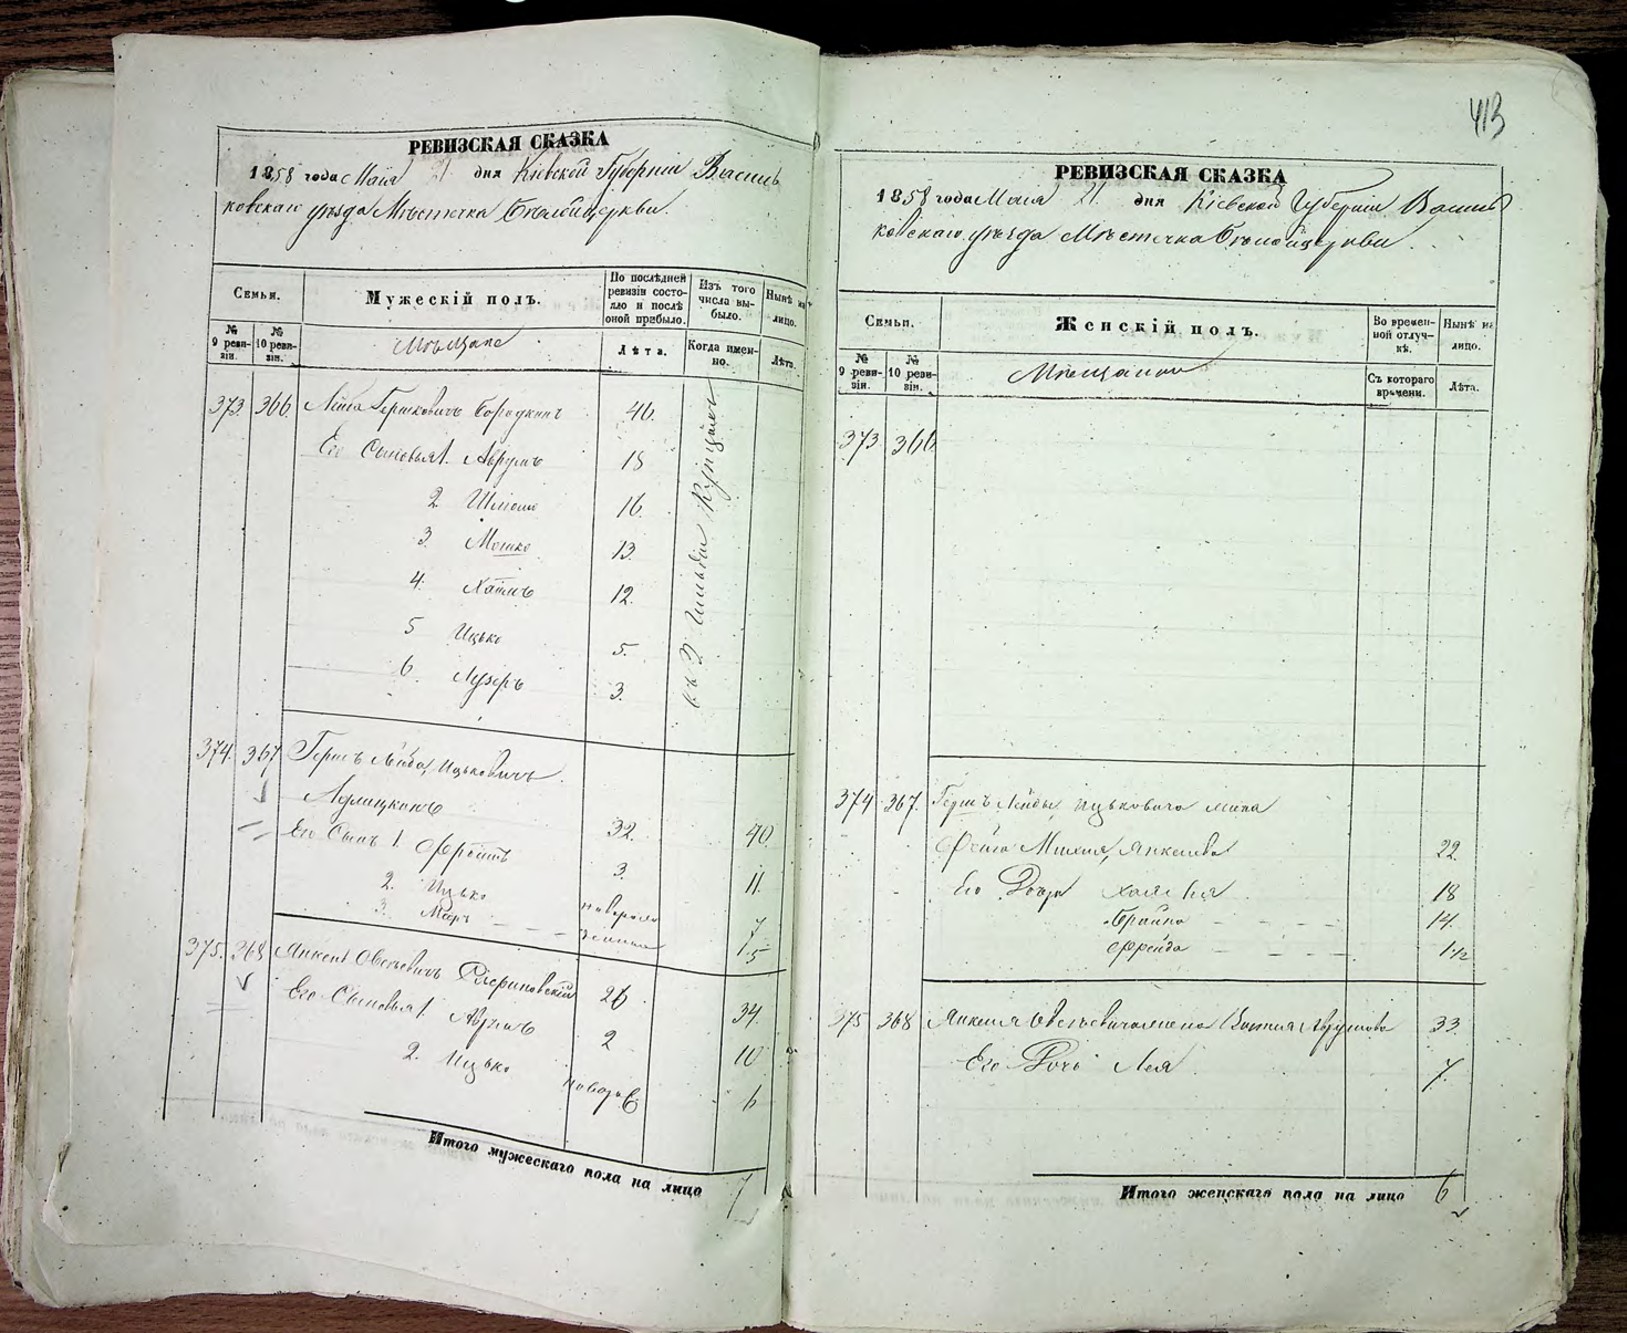 413
РЕВИЗСКАЯ СКАЗКА
1858 года Маія 21 дня Кіевской Губерніи Василь
ковскаго уѣзда Мѣстечка Бѣлойцеркви.
Семьи.
Мужескій полъ.
По послѣдней ревизіи состояло и послѣ оной прибыло.
Изъ того числа выбыло.
Нынѣ на лицо.
№ 9 ревизіи.
№ 10 ревизіи.
Мѣщане
Лѣта.
Когда именно.
Лѣта.
373. 366. Лейба Гершковичъ Бородкинъ 46.
Его Сыновья 1. Аврумъ 18
2. Шлiома 16.
3. Мошко 13.
4. Хаимъ 12.
5 Ицько 5.
6. Лузеръ 3.
въ 3 Гильдіи
374. 367 Гершъ Лейба, Ицьковичъ
32. 40.
Его Сынъ 1. 3. 11.
2. Ицько 7
3. Меръ 1.5
375. 368 Янкель Овсѣевичъ 26. 34.
Его Сыновья 1. Аврумъ 2 10
2. Ицько новорж 6
Итого мужескаго пола на лицо 7
РЕВИЗСКАЯ СКАЗКА
1858 года Маія 21. дня Кіевской Губерніи Василь
ковскаго уѣзда Мѣстечка Бѣлойцеркви.
Семьи.
Женскій полъ.
Во временной отлучкѣ.
Нынѣ на лицо.
№ 9 ревизіи.
№ 10 ревизіи.
Мѣщанки
Съ котораго времени.
Лѣта.
373 366
374 367. Гершъ Лейбы Ицьковича жена
Янкелева 22.
Его Дочери 18
Брайна 14.
Фрейда 1 1/2
375 368 Янкеля Овсѣевича жена Аврумова 33.
Его Дочь Лея 7.
Итого женскаго пола на лицо 6